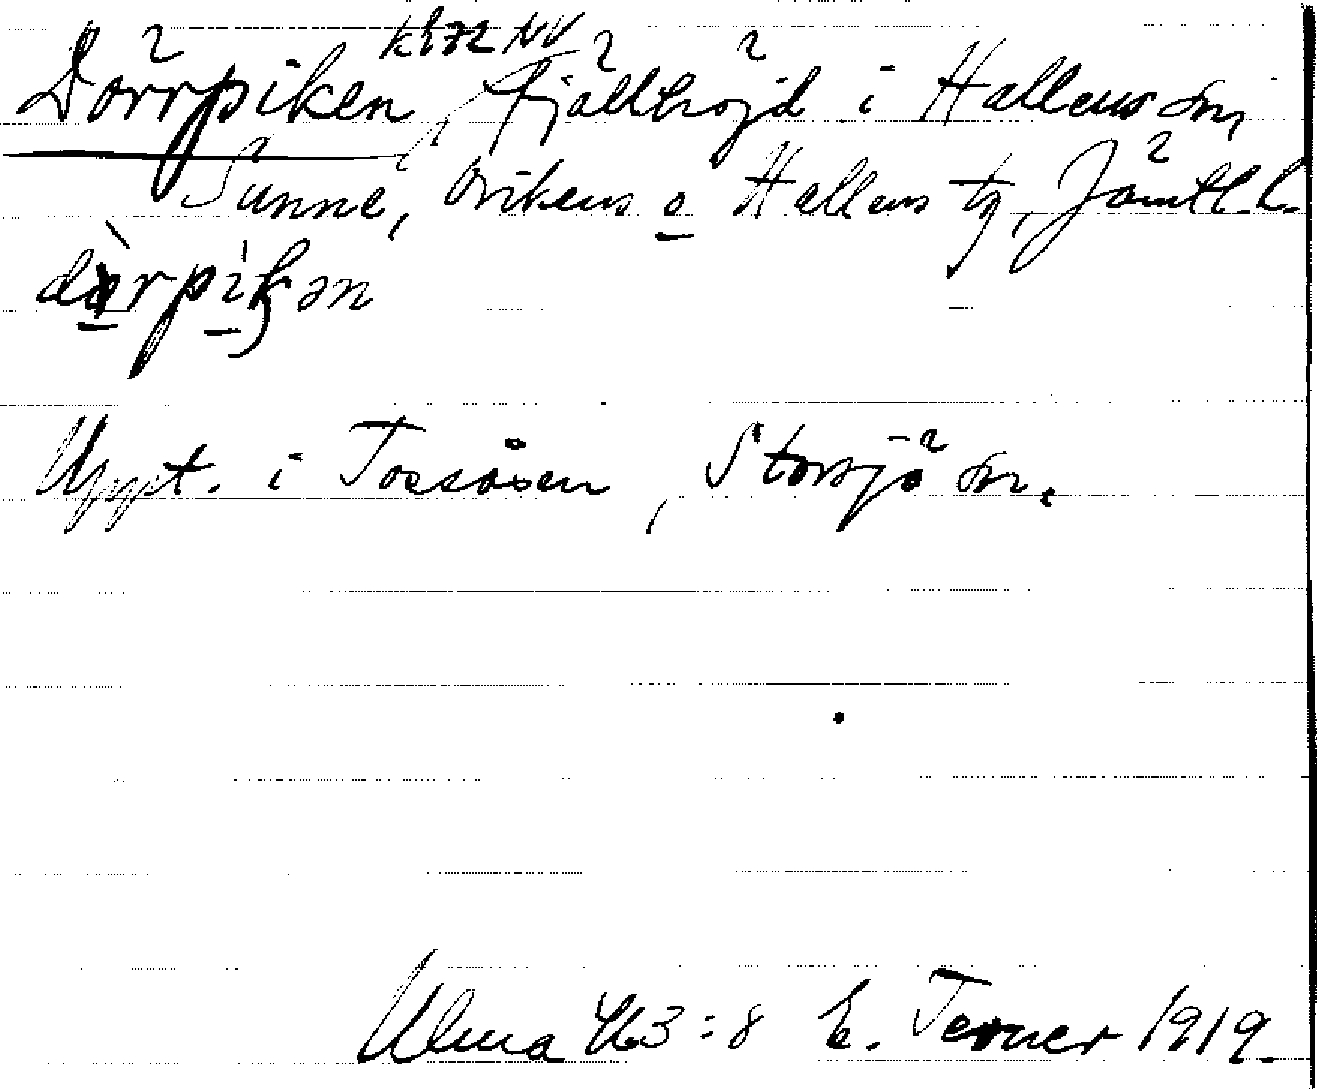 k872 NV
Dörrpiken, fjällhöjd i Hallens sn,
Sunne, Ovikens o Hallens tg, Jämtl. l.
dàrpìkən
Uppt. i Tossåsen, Storsjö sn.
Ulma 463:8 E. Terner 1919.